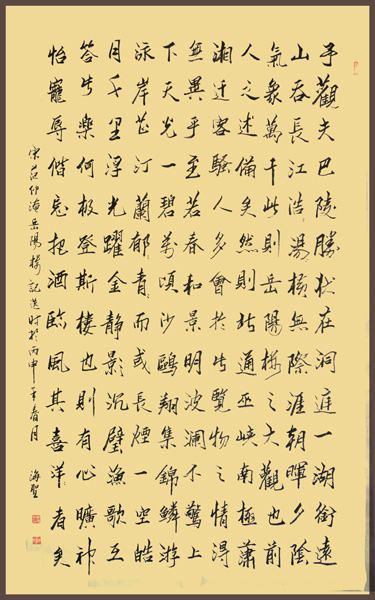 予觀夫巴陵勝狀在洞庭一湖銜遠
山吞長江浩湯橫無際涯朝暉夕陰
氣象萬千此則岳陽樓之大觀也前
人之述備矣然則北通巫峽南極瀟
湘遷客騷人多會於此覽物之情得
無異乎至若春和景明波瀾不驚上
下天光一碧萬頃沙鷗翔集錦鱗游
泳岸芷汀蘭郁青而或長煙一空皓
月千里浮光躍金靜影沉璧漁歌互
答此樂何極登斯樓也則有心曠神
怡寵辱偕忘把酒臨風其喜洋者矣
宋范仲淹岳陽樓記選时於丙申年春月 海聖